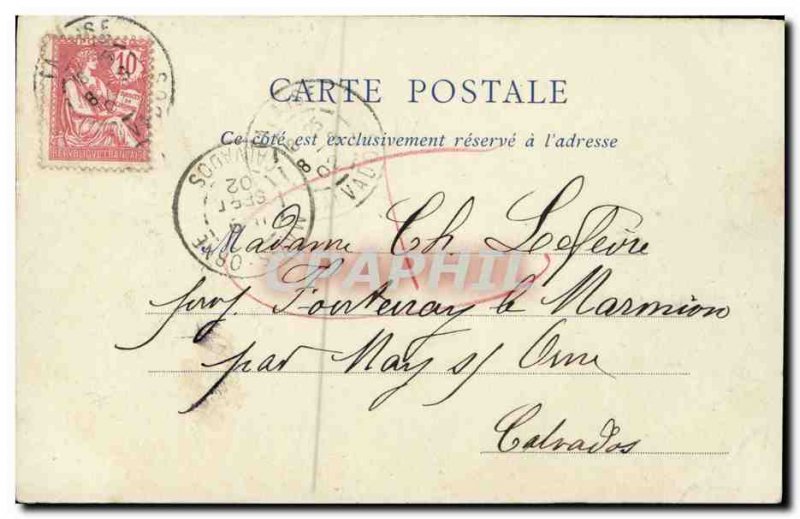 10
REPUBLIQUE FRANCAISE
CARTE POSTALE
Ce côté est exclusivement réservé à l'adresse
CALVADOS
ORNE
02
CPAPHIL
Madame Ch. Lefèvre
Fontenay le Marmion
par May s/ Orne
Calvados